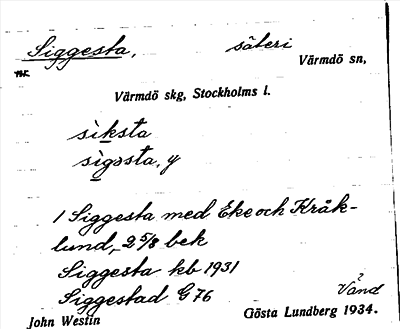 Siggesta, säteri
Värmdö sn,
Värmdö skg, Stockholms l.
siksta
sigssta, y
1 Siggesta med Eke och Kråk-
lund, 2 5/8 bek
Siggesta kb 1931
Siggestad G 76
Vänd
John Westin Gösta Lundberg 1934.